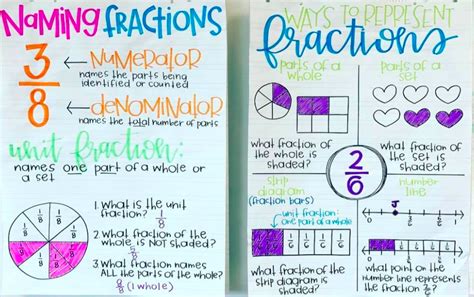 NAMING FRACTIONS
3
8
NUMERATOR
names the parts being
identified or counted
DENOMINATOR
names the total number of parts
unit fraction:
names one part of a whole or
a set
1/8 1/8
1/8 1/8
1/8 1/8
1/8 1/8
1. What is the unit
fraction? 1/8
2. What fraction of the
whole is NOT shaded?
5/8
3. What fraction names
ALL the parts of the whole?
8/8 (1 whole)
WAYS TO REPRESENT
fractions
parts of a
whole
parts of a
set
what fraction of
the whole is
shaded?
what fraction of
the set is
shaded?
2
6
strip
diagram
(fraction bars)
unit fraction:
one part of a whole
1/6 1/6 1/6 1/6
what fraction of the
strip diagram is
shaded?
number
line
J
0
1
what point on the
number line represents
the fraction 2/6?